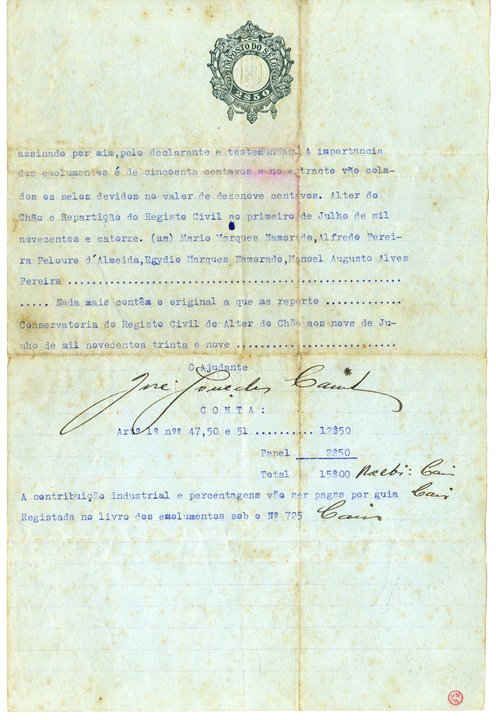 IMPOSTO DO SELO
2$50
assinado por mim,pelo declarante e testemunhas. A importancia
dos emolumentos é de cincoenta centavos e no extracto vão cola-
dos os selos devidos no valor de dezenove centavos. Alter do
Chão e Repartição do Registo Civil ao primeiro de Julho de mil
novecentos e catorze. (aa) Mario Marques Namorado,Alfredo Perei-
ra Peloure d'Almeida,Egydio Marques Namorado,Manoel Augusto Alves
Pereira ..................................................
..... Nada mais contêm o original a que me reporto ............
Conservatoria do Registo Civil de Alter do Chão aos nove de Ju-
nho de mil novecentos trinta e nove .........................
O Ajudante
José
CONTA:
Artº 1º nºs 47,50 e 51 .......... 12$50
Papel 2$50
Total 15$00
A contribuição industrial e percentagens vão ser pagas por guia
Registada no livro dos emolumentos sob o Nº 725